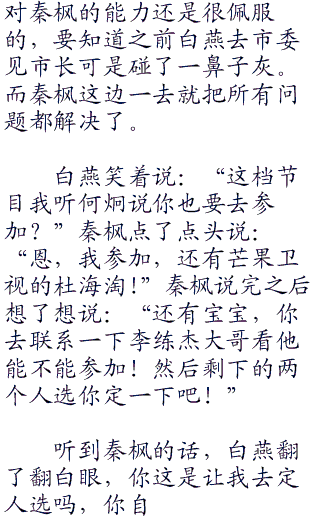 对秦枫的能力还是很佩服
的，要知道之前白燕去市委
见市长可是碰了一鼻子灰。
而秦枫这边一去就把所有问
题都解决了。
白燕笑着说：“这档节
目我听何炯说你也要去参
加？”秦枫点了点头说：
“恩，我参加，还有芒果卫
视的杜海淘!”秦枫说完之后
想了想说：“还有宝宝，你
去联系一下李练杰大哥看他
能不能参加！然后剩下的两
个人选你定一下吧！”
听到秦枫的话，白燕翻
了翻白眼，你这是让我去定
人选吗，你自